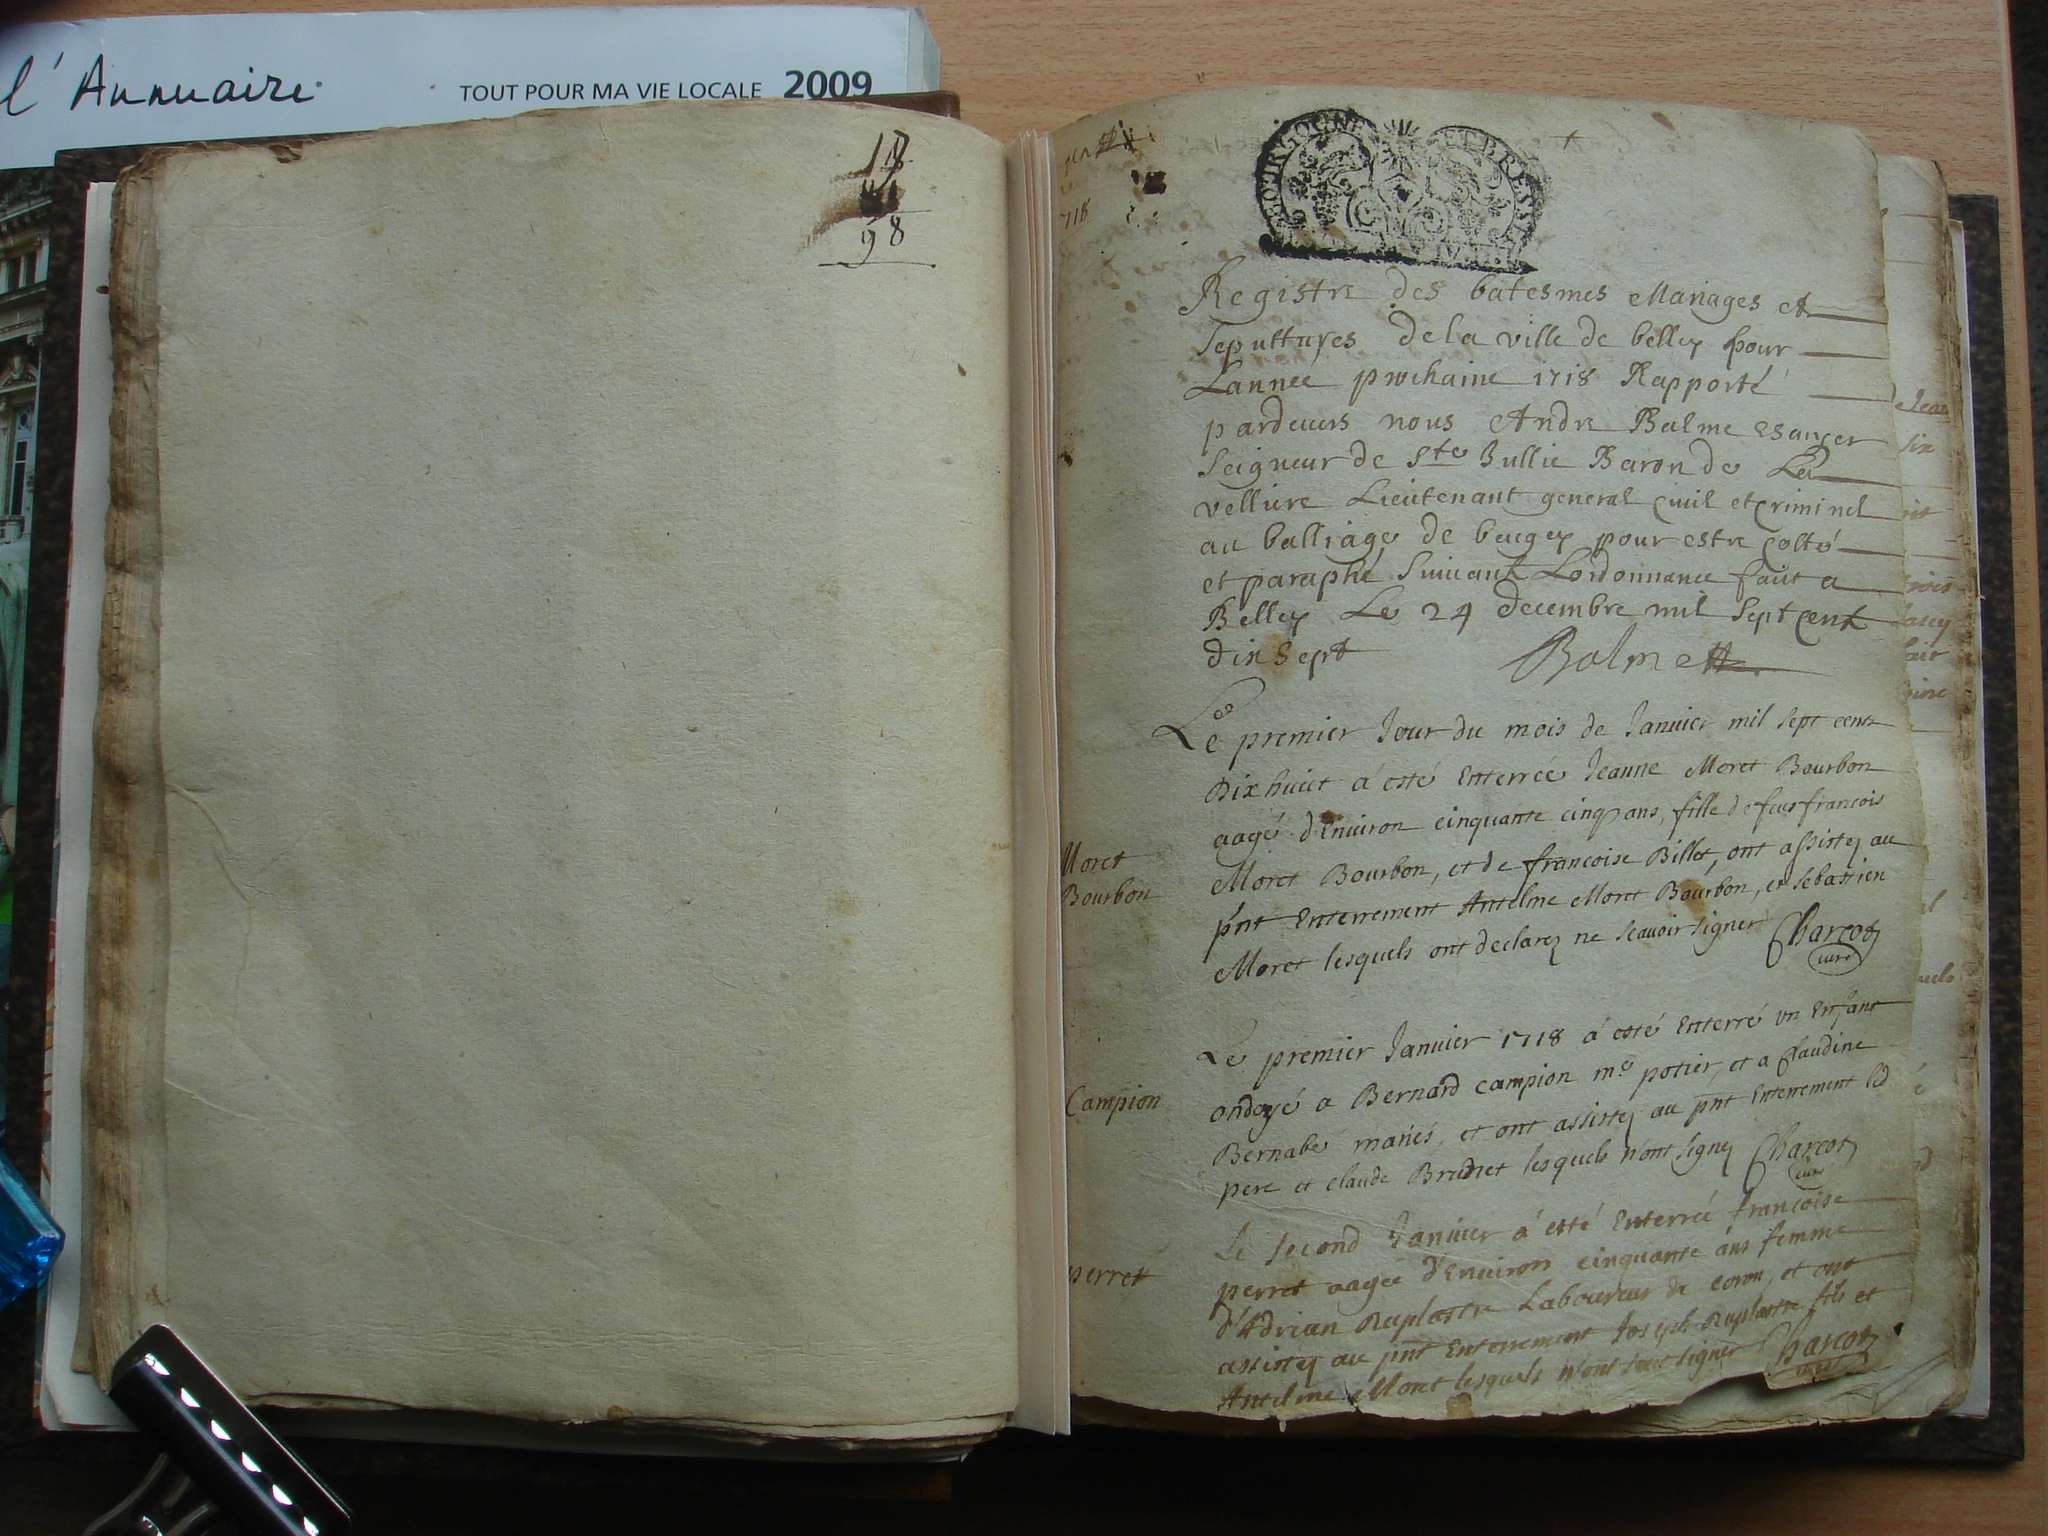 l'Annuaire
TOUT POUR MA VIE LOCALE 2009
18
98
718
BOURGOGNE ET BRESSE
Registre des batesmes Mariages et
sepultures de la ville de belley pour
Lannee prochaine 1718 Rapporté
pardevers nous Andre Balme Esauyer
Seigneur de Ste Jullie Baron de La
velliere Lieutenant general Civil et Criminel
au balliage de beugey pour estre Cotté
et paraphé Suivant Lordonnance fait a
Belley Le 24 decembre mil Sept Cent
dix Sept Balme
Le premier Jour du mois de Janvier mil sept cent
Dix huict á esté Enterrée Jeanne Moret Bourbon
aagé d'Environ cinquante cinq ans, fille de feus francois
Moret
Moret Bourbon, et de francoise Billet, ont assistez au
Bourbon
pnt Enterrement Antelme Moret Bourbon, et Sebastien
Moret lesquels ont declarez ne scavoir signer Charcot
curé
Le premier Janvier 1718 á esté Enterré un Enfant
Campion
ondoyé a Bernard Campion me potier, et a Claudine
Bernabé mariés, et ont assistez au pnt Enterrement led
pere et claude Brudret lesquels n'ont signez Charcot
curé
Le second Janvier á esté Enterrée francoise
perret
perret aagée d'Environ cinquante ans femme
d'Adrian Ruplastre Laboureur de Coron, et ont
assistez au pnt Enterrement Joseph Ruplastre fils et
Antelme Moret lesquels n'ont sceu signer Charcot
curé